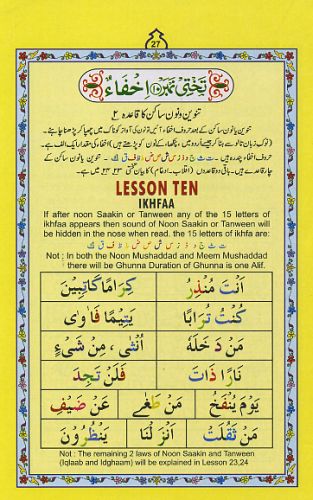 27
تختی نمبر ۱۰ اِخْفَاءٌ
تنوین و نون ساکن کا قاعدہ ۲
تنوین یا نون ساکن کے بعد حروف اخفاء آئیں تو نون کی آواز کو ناک میں چھپا کر پڑھنا چاہئے۔
حروف اخفاء پندرہ ہیں۔ ت ث ج د ذ ز س ش ص ض ط ظ ف ق ك
LESSON TEN
IKHFAA
If after noon Saakin or Tanween any of the 15 letters of
ikhfaa appears then sound of Noon Saakin or Tanween will
be hidden in the nose when read. the 15 letters of ikhfa are:
ت ث ج د ذ ز س ش ص ض ط ظ ف ق ك
Not : In both the Noon Mushaddad and Meem Mushaddad
there will be Ghunna Duration of Ghunna is one Alif.
كِرَامًا كَاتِبِيْنَ اَنْتَ مُنْذِرُ
يَتِيْمًا فَاٰوٰى كُنْتُ تُرَابًا
اُنْثٰى ، مِنْ شَيْءٍ مَنْ دَخَلَهٗ
فَلَنْ تَجِدَ نَارًا ذَاتَ
عَنْ ضَيْفِ مَنْ طَغٰى يَوْمَ يُنْفَخُ
يَنْظُرُوْنَ اَنْزَلْنَا مَنْ ثَقُلَتْ
Not : The remaining 2 laws of Noon Saakin and Tanween
(Iqlaab and Idghaam) will be explained in Lesson 23,24